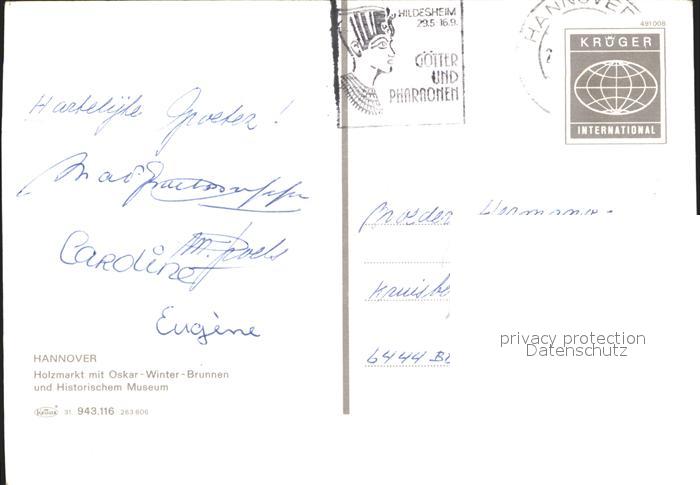 HILDESHEIM
29.5.-16.9.
GÖTTER
UND
PHARAONEN
HANNOVER
491 008
KRÜGER
INTERNATIONAL
Hartelijke Groeten !
Caroline
Eugène
Moeder Hermano
Kruisbe
6444 B
privacy protection
Datenschutz
HANNOVER
Holzmarkt mit Oskar-Winter-Brunnen
und Historischem Museum
Krüger 31 943.116 263 606